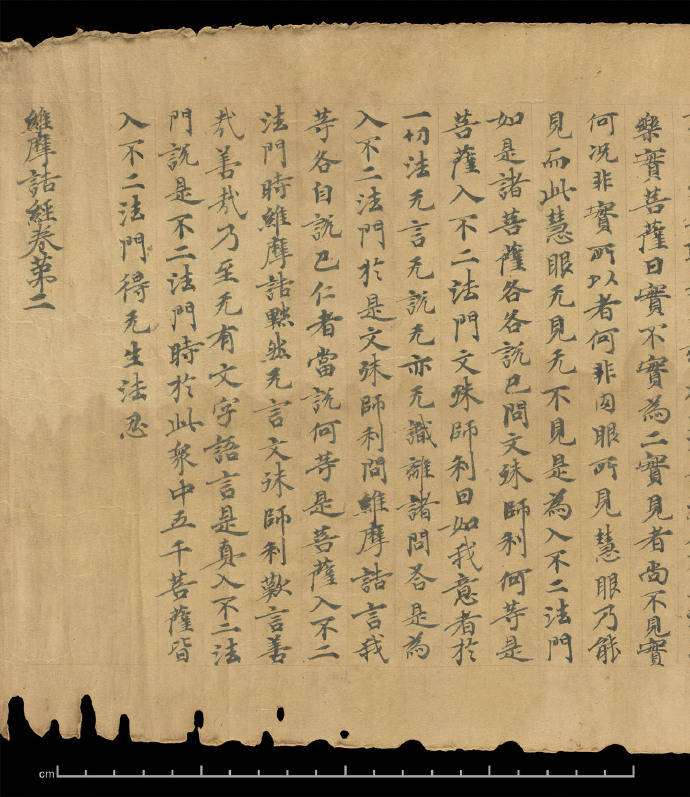 樂實菩薩曰實不實為二實見者尚不見實
何況非實所以者何非肉眼所見慧眼乃能
見而此慧眼无見无不見是為入不二法門
如是諸菩薩各各說已問文殊師利何等是
菩薩入不二法門文殊師利曰如我意者於
一切法无言无說无示无識離諸問荅是為
入不二法門於是文殊師利問維摩詰言我
等各自說已仁者當說何等是菩薩入不二
法門時維摩詰黙然无言文殊師利歎言善
哉善哉乃至无有文字語言是真入不二法
門說是不二法門時於此衆中五千菩薩皆
入不二法門得无生法忍
維摩詰經卷第二
cm